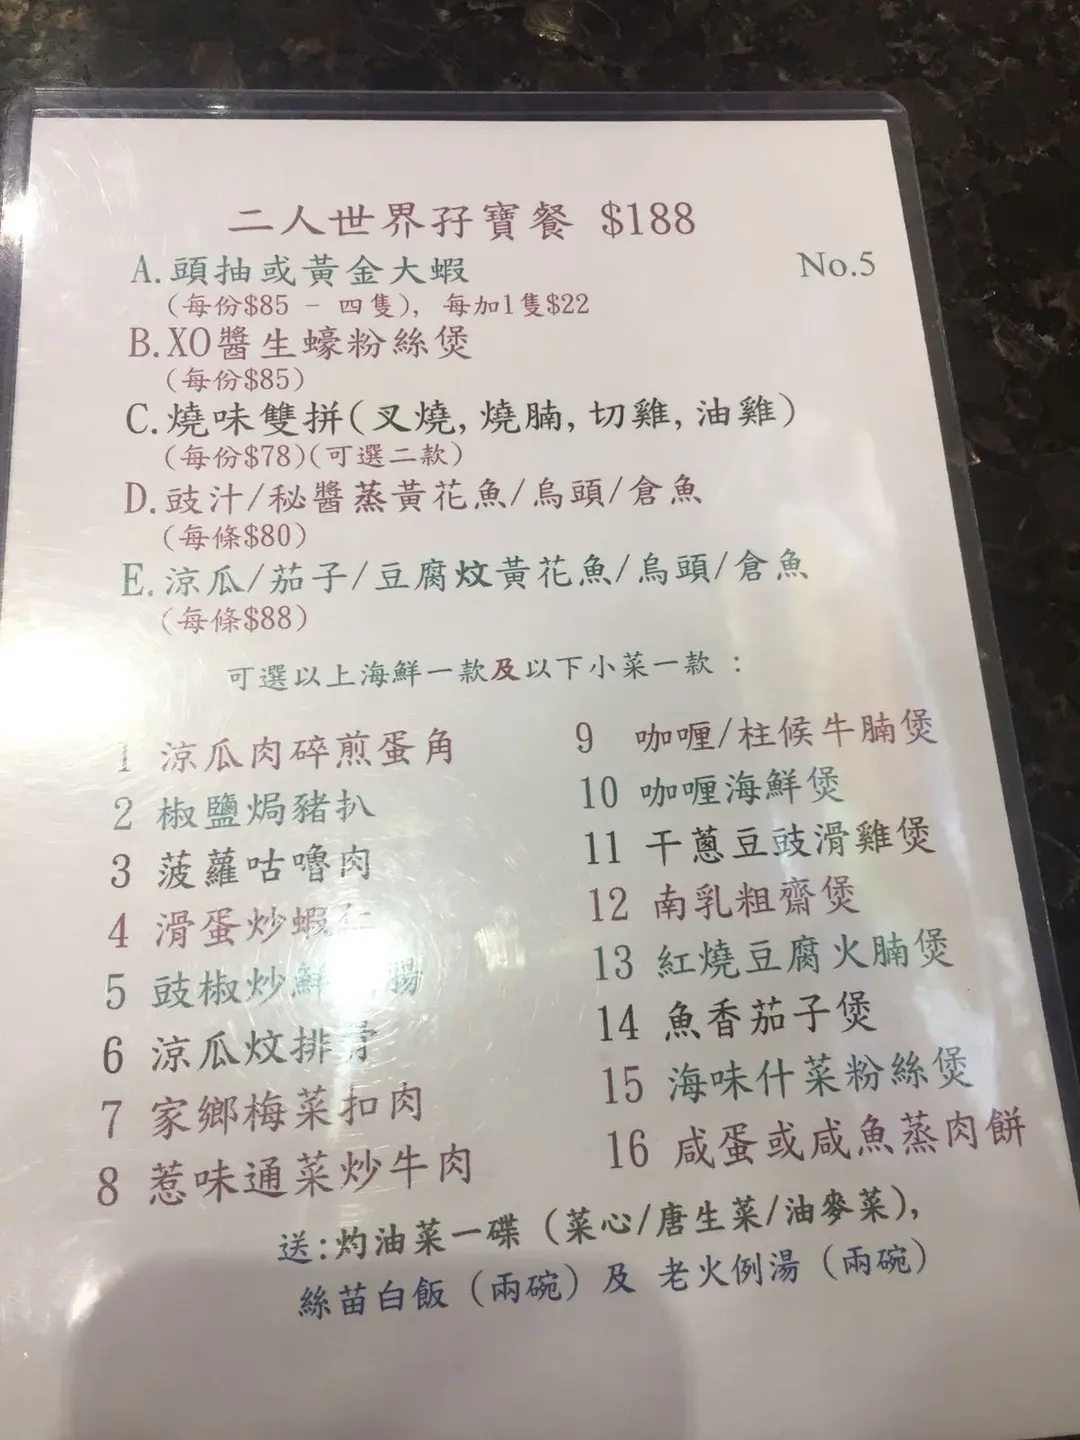 二人世界孖寶餐 $188
No.5
A.頭抽或黃金大蝦
(每份$85 - 四隻), 每加1隻$22
B.XO醬生蠔粉絲煲
(每份$85)
C.燒味雙拼(叉燒, 燒腩, 切雞, 油雞)
(每份$78)(可選二款)
D.豉汁/秘醬蒸黃花魚/烏頭/倉魚
(每條$80)
E.涼瓜/茄子/豆腐炆黃花魚/烏頭/倉魚
(每條$88)
可選以上海鮮一款及以下小菜一款 :
1 涼瓜肉碎煎蛋角
2 椒鹽焗豬扒
3 菠蘿咕嚕肉
4 滑蛋炒蝦仁
5 豉椒炒鮮 腸
6 涼瓜炆排骨
7 家鄉梅菜扣肉
8 惹味通菜炒牛肉
9 咖喱/柱候牛腩煲
10 咖喱海鮮煲
11 干蔥豆豉滑雞煲
12 南乳粗齋煲
13 紅燒豆腐火腩煲
14 魚香茄子煲
15 海味什菜粉絲煲
16 咸蛋或咸魚蒸肉餅
送:灼油菜一碟 (菜心/唐生菜/油麥菜),
絲苗白飯 (兩碗) 及 老火例湯 (兩碗)